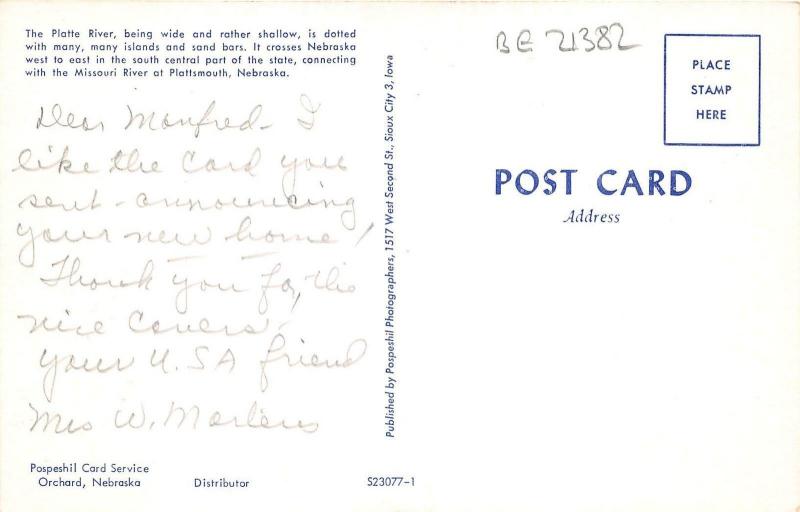 The Platte River, being wide and rather shallow, is dotted
with many, many islands and sand bars. It crosses Nebraska
west to east in the south central part of the state, connecting
with the Missouri River at Plattsmouth, Nebraska.
Dear Manfred - I
like the card you
sent - announcing
your new home!
Thank you for, the
nice covers!
your U.SA friend
Mrs W. Martens
Pospeshil Card Service
Orchard, Nebraska
Distributor
S23077-1
Published by Pospeshil Photographers, 1517 West Second St., Sioux City 3, Iowa
BE 21382
PLACE
STAMP
HERE
POST CARD
Address